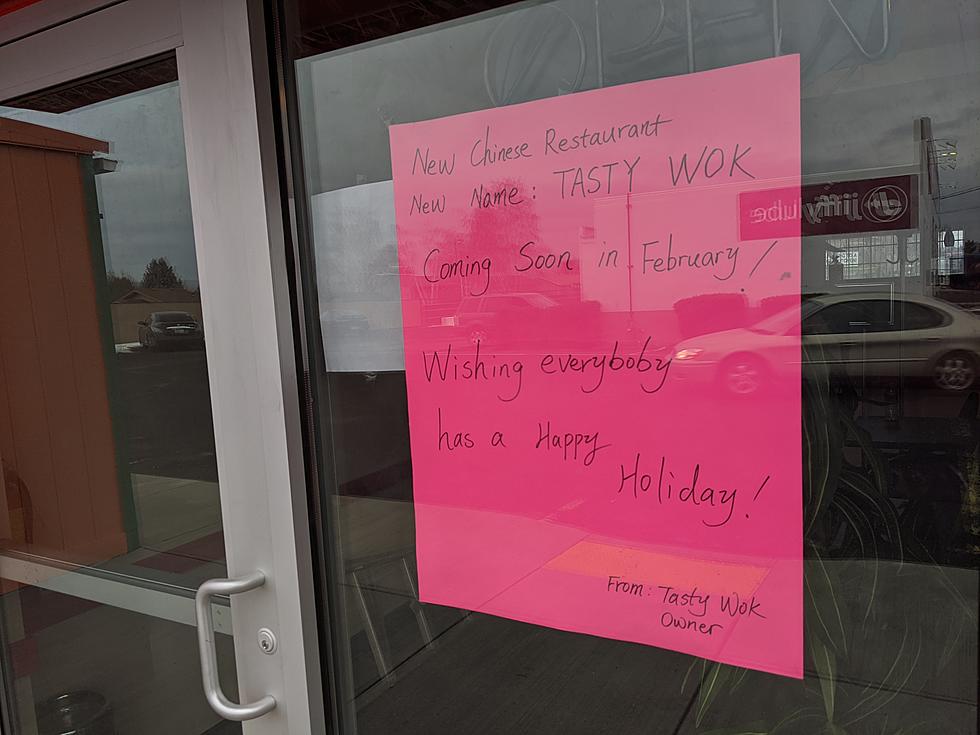 OPEN
New Chinese Restaurant
New Name: TASTY WOK
Coming Soon in February!
Wishing everyboby
has a Happy
Holiday!
From: Tasty Wok
Owner
jiffylube